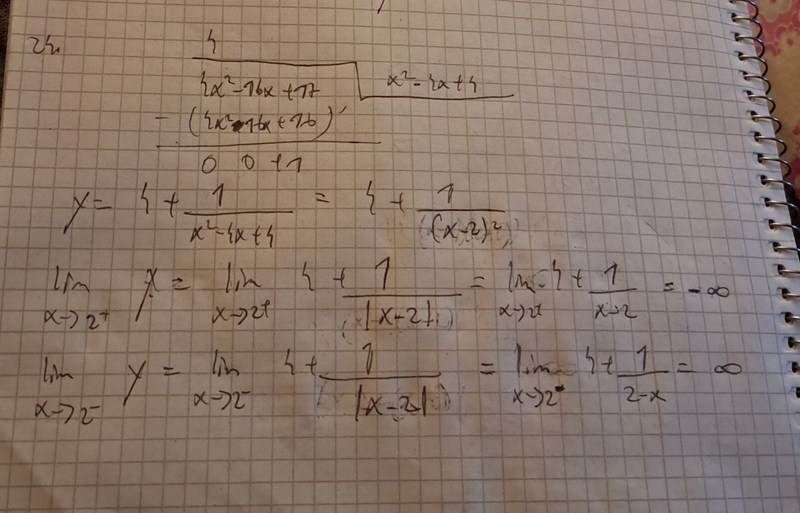 24.
4
4x²-16x+17 x²-4x+4
-(4x²-16x+16)
0 0 +1
y= 4+ 1/(x²-4x+4) = 4+ 1/(x-2)²
lim x→2⁺ y = lim x→2⁺ 4+ 1/|x-2| = lim x→2⁺ 4+ 1/(x-2) = -∞
lim x→2⁻ y = lim x→2⁻ 4+ 1/|x-2| = lim x→2⁻ 4+ 1/(2-x) = ∞